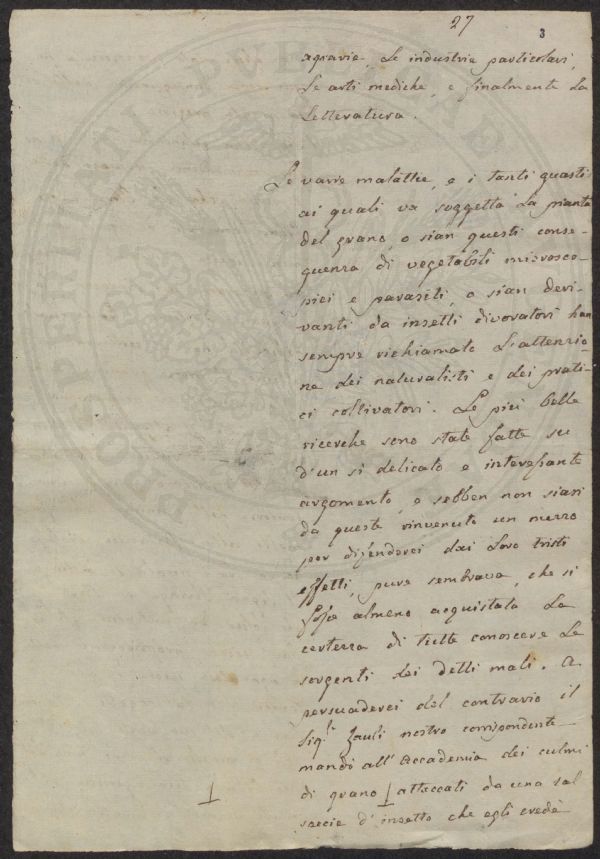 27
3
agrarie, Le industrie particolari,
Le arti mediche, e finalmente La
Letteratura.
Le varie malattie, e i tanti guasti
ai quali va soggetta La pianta
del grano, o sian questi conse-
guenza di vegetabili microsco-
pici e parasiti, o sian deri-
vanti da insetti divoratori han
sempre richiamato L'attenzio-
ne dei naturalisti e dei prati-
ci coltivatori. Le più belle
ricerche sono state fatte su
d'un sì delicato e interessante
argomento, e sebben non siasi
da queste rinvenuto un mezzo
per difenderci dai Loro tristi
effetti, pure sembrava, che si
fosse almeno acquistata La
certezza di tutte conoscere Le
sorgenti dei detti mali. A
persuaderci del contrario il
Sigr. Zauli nostro corrispondente
mandò all'Accademia dei culmi
di grano ⊥ attaccati da una tal
specie d'insetto che egli crede
⊥
PROPRIETATI PVBLICAE